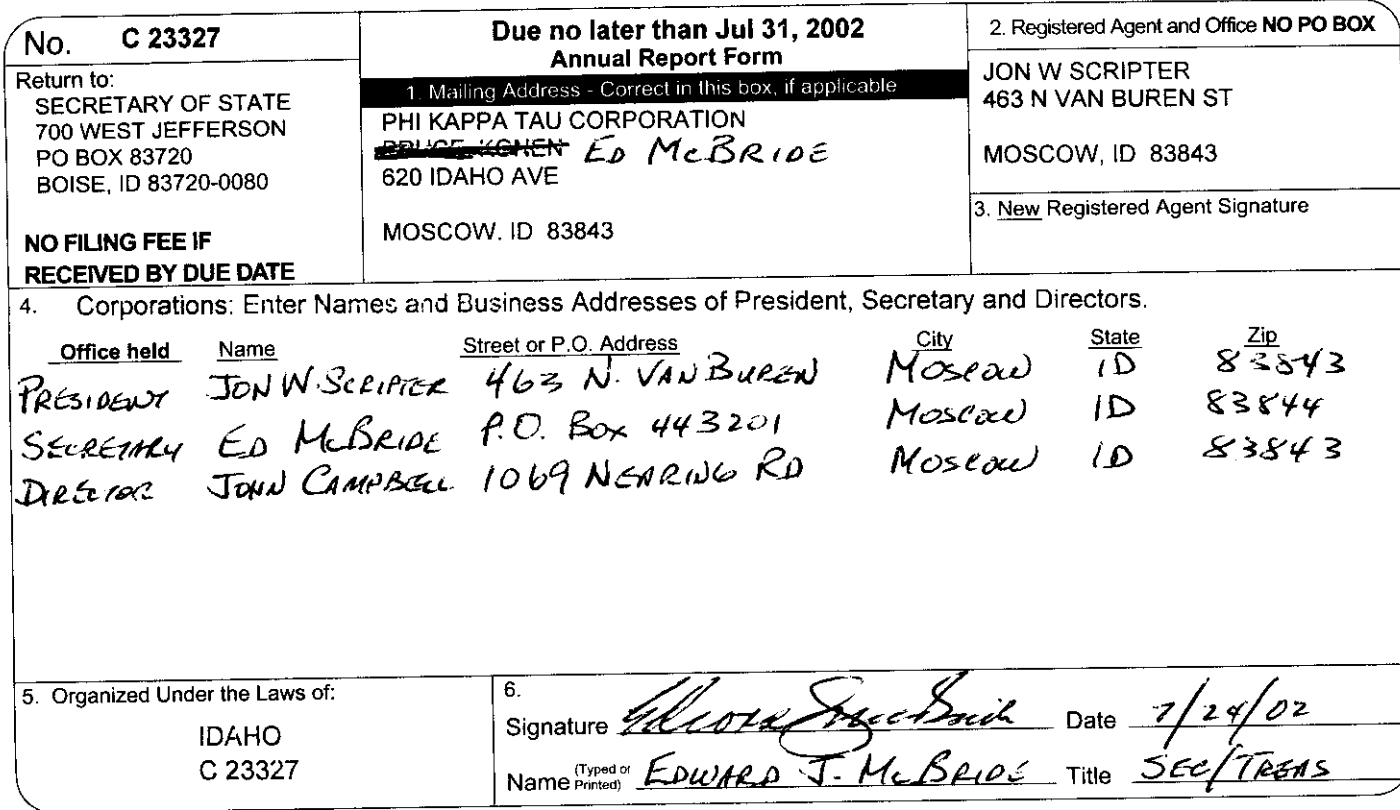 No. C 23327
Return to:
SECRETARY OF STATE
700 WEST JEFFERSON
PO BOX 83720
BOISE, ID 83720-0080
NO FILING FEE IF
RECEIVED BY DUE DATE
Due no later than Jul 31, 2002
Annual Report Form
1. Mailing Address - Correct in this box, if applicable
PHI KAPPA TAU CORPORATION
ED MCBRIDE
620 IDAHO AVE
MOSCOW. ID 83843
2. Registered Agent and Office NO PO BOX
JON W SCRIPTER
463 N VAN BUREN ST
MOSCOW, ID 83843
3. New Registered Agent Signature
4. Corporations: Enter Names and Business Addresses of President, Secretary and Directors.
Office held Name Street or P.O. Address City State Zip
PRESIDENT JON W. SCRIPTER 463 N. VAN BUREN MOSCOW ID 83843
SECRETARY ED MCBRIDE P.O. Box 443201 MOSCOW ID 83844
DIRECTOR JOHN CAMPBELL 1069 NEARING RD MOSCOW ID 83843
5. Organized Under the Laws of:
IDAHO
C 23327
6.
Signature Date 7/24/02
Name (Typed or Printed) EDWARD J. MCBRIDE Title SEC/TREAS